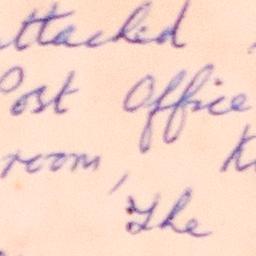 attached
Post Office
room,
The